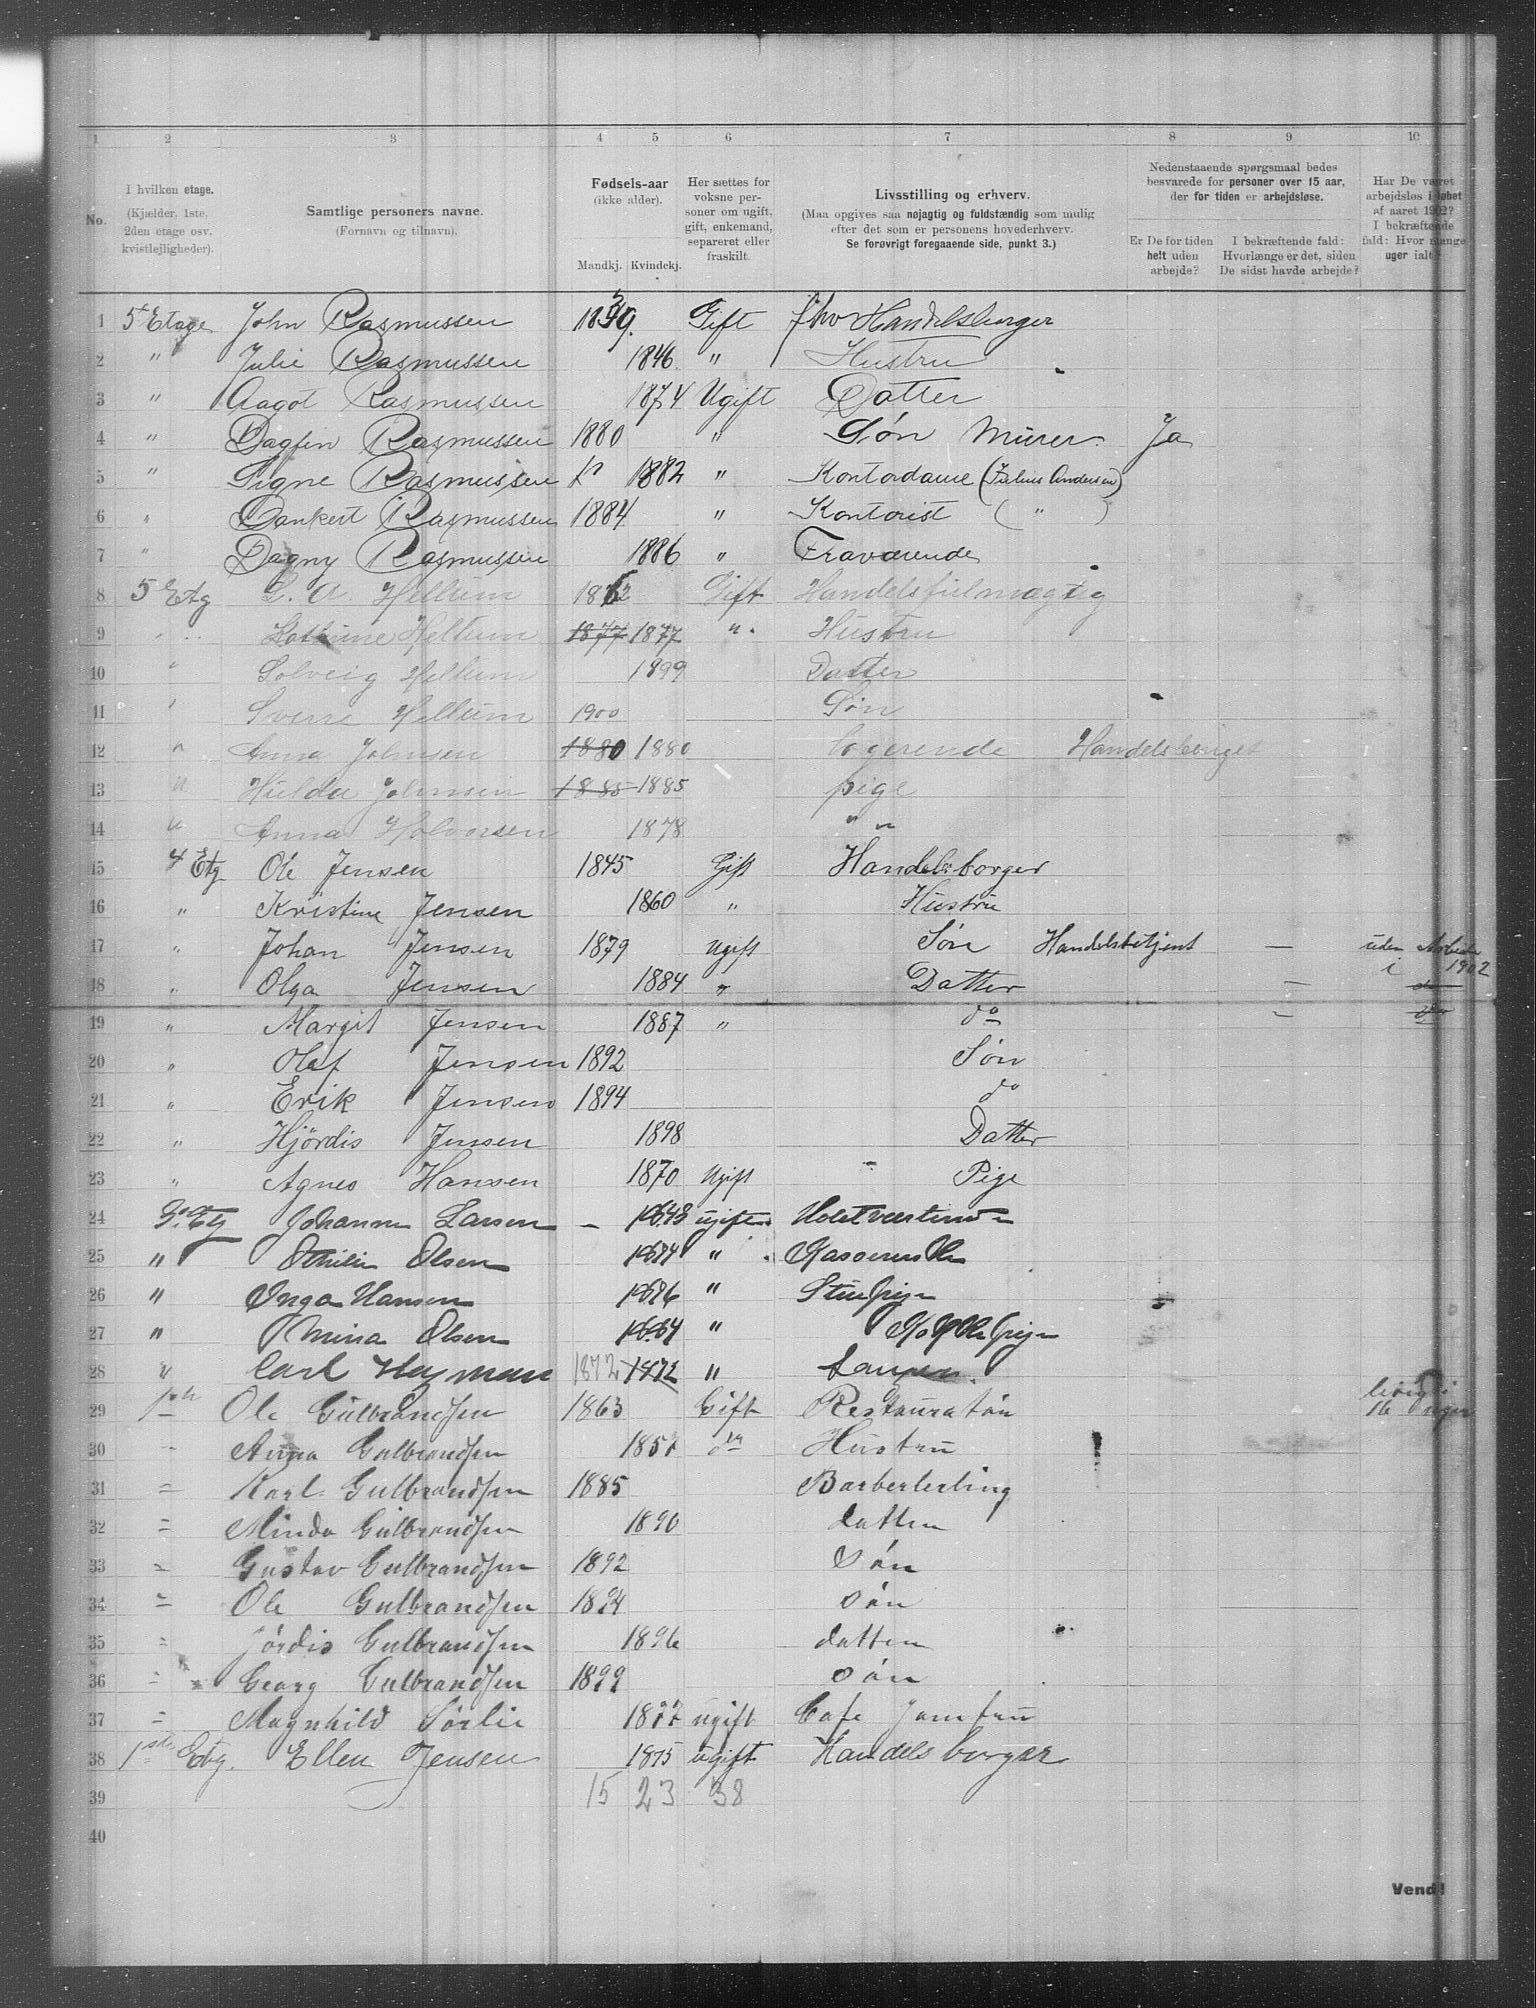 1 2 3 4 5 6 7 8 9 10
No.
I hvilken etage.
(Kjælder, 1ste, 2den etage osv. kvistlejligheder).
Samtlige personers navne.
(Fornavn og tilnavn).
Fødsels-aar
(ikke alder).
Mandkj. Kvindekj.
Her sættes for voksne personer om ugift, gift, enkemand, separeret eller fraskilt.
Livsstilling og erhverv.
(Maa opgives saa nøjagtig og fuldstændig som mulig efter det som er personens hovederhverv.
Se forøvrigt foregaaende side, punkt 3.)
Nedenstaaende spørgsmaal bedes besvarede for personer over 15 aar, der for tiden er arbejdsløse.
Er De for tiden helt uden arbejde?
I bekræftende fald: Hvorlænge er det, siden De sidst havde arbejde?
Har De været arbejdsløs i løbet af aaret 1902? I bekræftende fald: Hvor mange uger ialt?
1 5 Etage John Rasmussen 1839. Gift fhv Handelsborger
2 " Julie Rasmussen 1846 " Hustru
3 " Aagot Rasmussen 1874 Ugift Datter
4 " Dagfin Rasmussen 1880 " Søn Murer Ja
5 " Signe Rasmussen 1882 " Kontordame (Julius Andersen)
6 " Dankert Rasmussen 1884 " Kontorist ( " )
7 " Dagny Rasmussen 1886 " Fraværende
8 5 Etg G. A. Hellum Gift Handelsfuldmægtig
9 " Hellum 1877 1877 " Hustru
10 " Solveig Hellum 1899 Datter
11 " Sverre Hellum 1900 Søn
12 " Anna Johnsen 1880 1880 logerende Handelsborget
13 " Hulda Johnsen 1885 1885 pige
14 " Anna Holvorsen 1878 " "
15 4 Etg Ole Jensen 1845 Gift Handelsborger
16 " Kristine Jensen 1860 " Hustru
17 " Johan Jensen 1879 Ugift Søn Handelsbetjent — uden Arbeide i 1902
18 " Olga Jensen 1884 " Datter — do
19 " Margit Jensen 1887 " do — do
20 " Olaf Jensen 1892 Søn
21 " Erik Jensen 1894 do
22 " Hjördis Jensen 1898 Datter
23 " Agnes Hansen 1870 Ugift " Pige
24 3die Etg Johanne Larsen — 1843 ugift
25 " Othilie Olsen 1874 "
26 " Inga Hansen 1876 " Stuepige
27 " Mina Olsen 1864 "
28 " Carl Heyman 1872 1872 "
29 Ole Gulbrandsen 1863 Gift Restauratør 16 uger
30 " Anna Gulbrandsen do Hustru
31 " Karl Gulbrandsen 1885 Barberlerling
32 " Minda Gulbrandsen 1890 datten
33 " Gustav Gulbrandsen 1892 søn
34 " Ole Gulbrandsen 1894 søn
35 " Jördis Gulbrandsen 1896 datten
36 " Georg Gulbrandsen 1899 søn
37 " Magnhild Sørlie 1877 ugift Cafe Jomfru
38 1ste Etg. Ellen Jensen 1875 ugift Handelsborger
39 15 23 38
40
Vend!